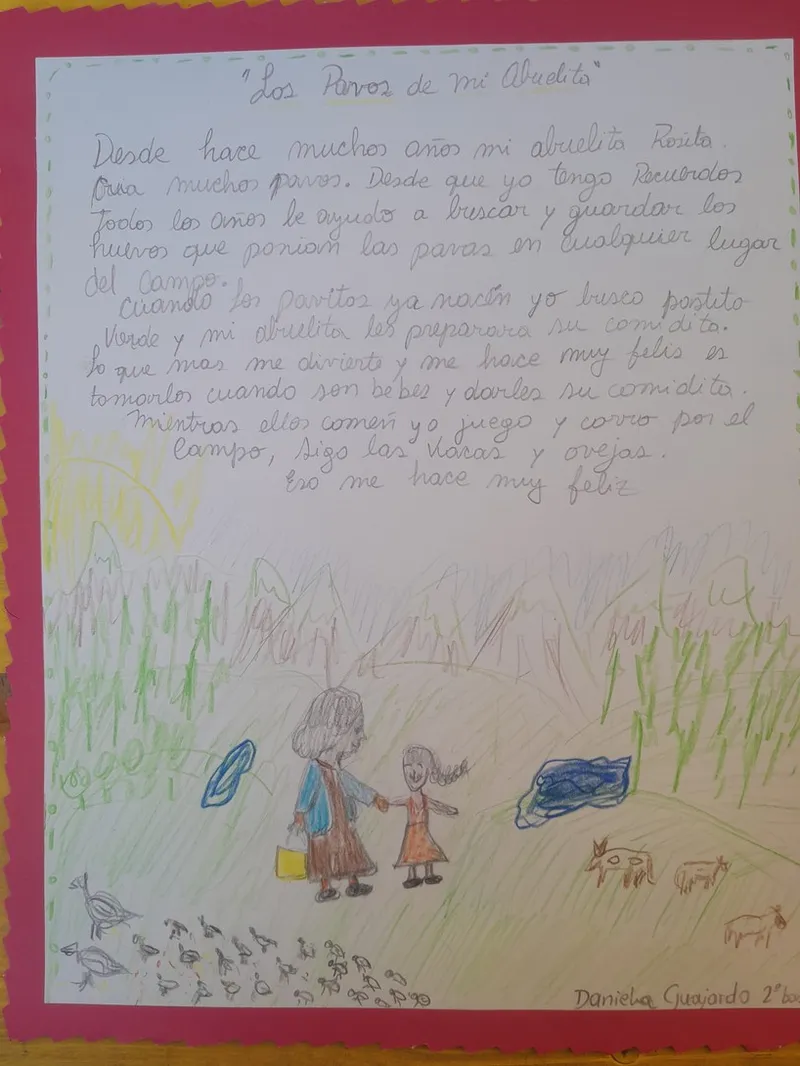 "Los Pavos de mi Abuelita"
Desde hace muchos años mi abuelita Rosita.
Cria muchos pavos. Desde que yo tengo Recuerdos
Todos los años le ayudo a buscar y guardar los
huevos que ponian las pavas en cualquier lugar
del campo.
Cuando los pavitos ya nacen yo busco pastito
Verde y mi abuelita les preparara su comidita.
Lo que mas me divierte y me hace muy felis es
tomarlos cuando son bebes y darles su comidita.
Mientras ellos comen yo juego y corro por el
Campo, sigo las Vacas y ovejas.
Eso me hace muy feliz
Daniela Guajardo 2°